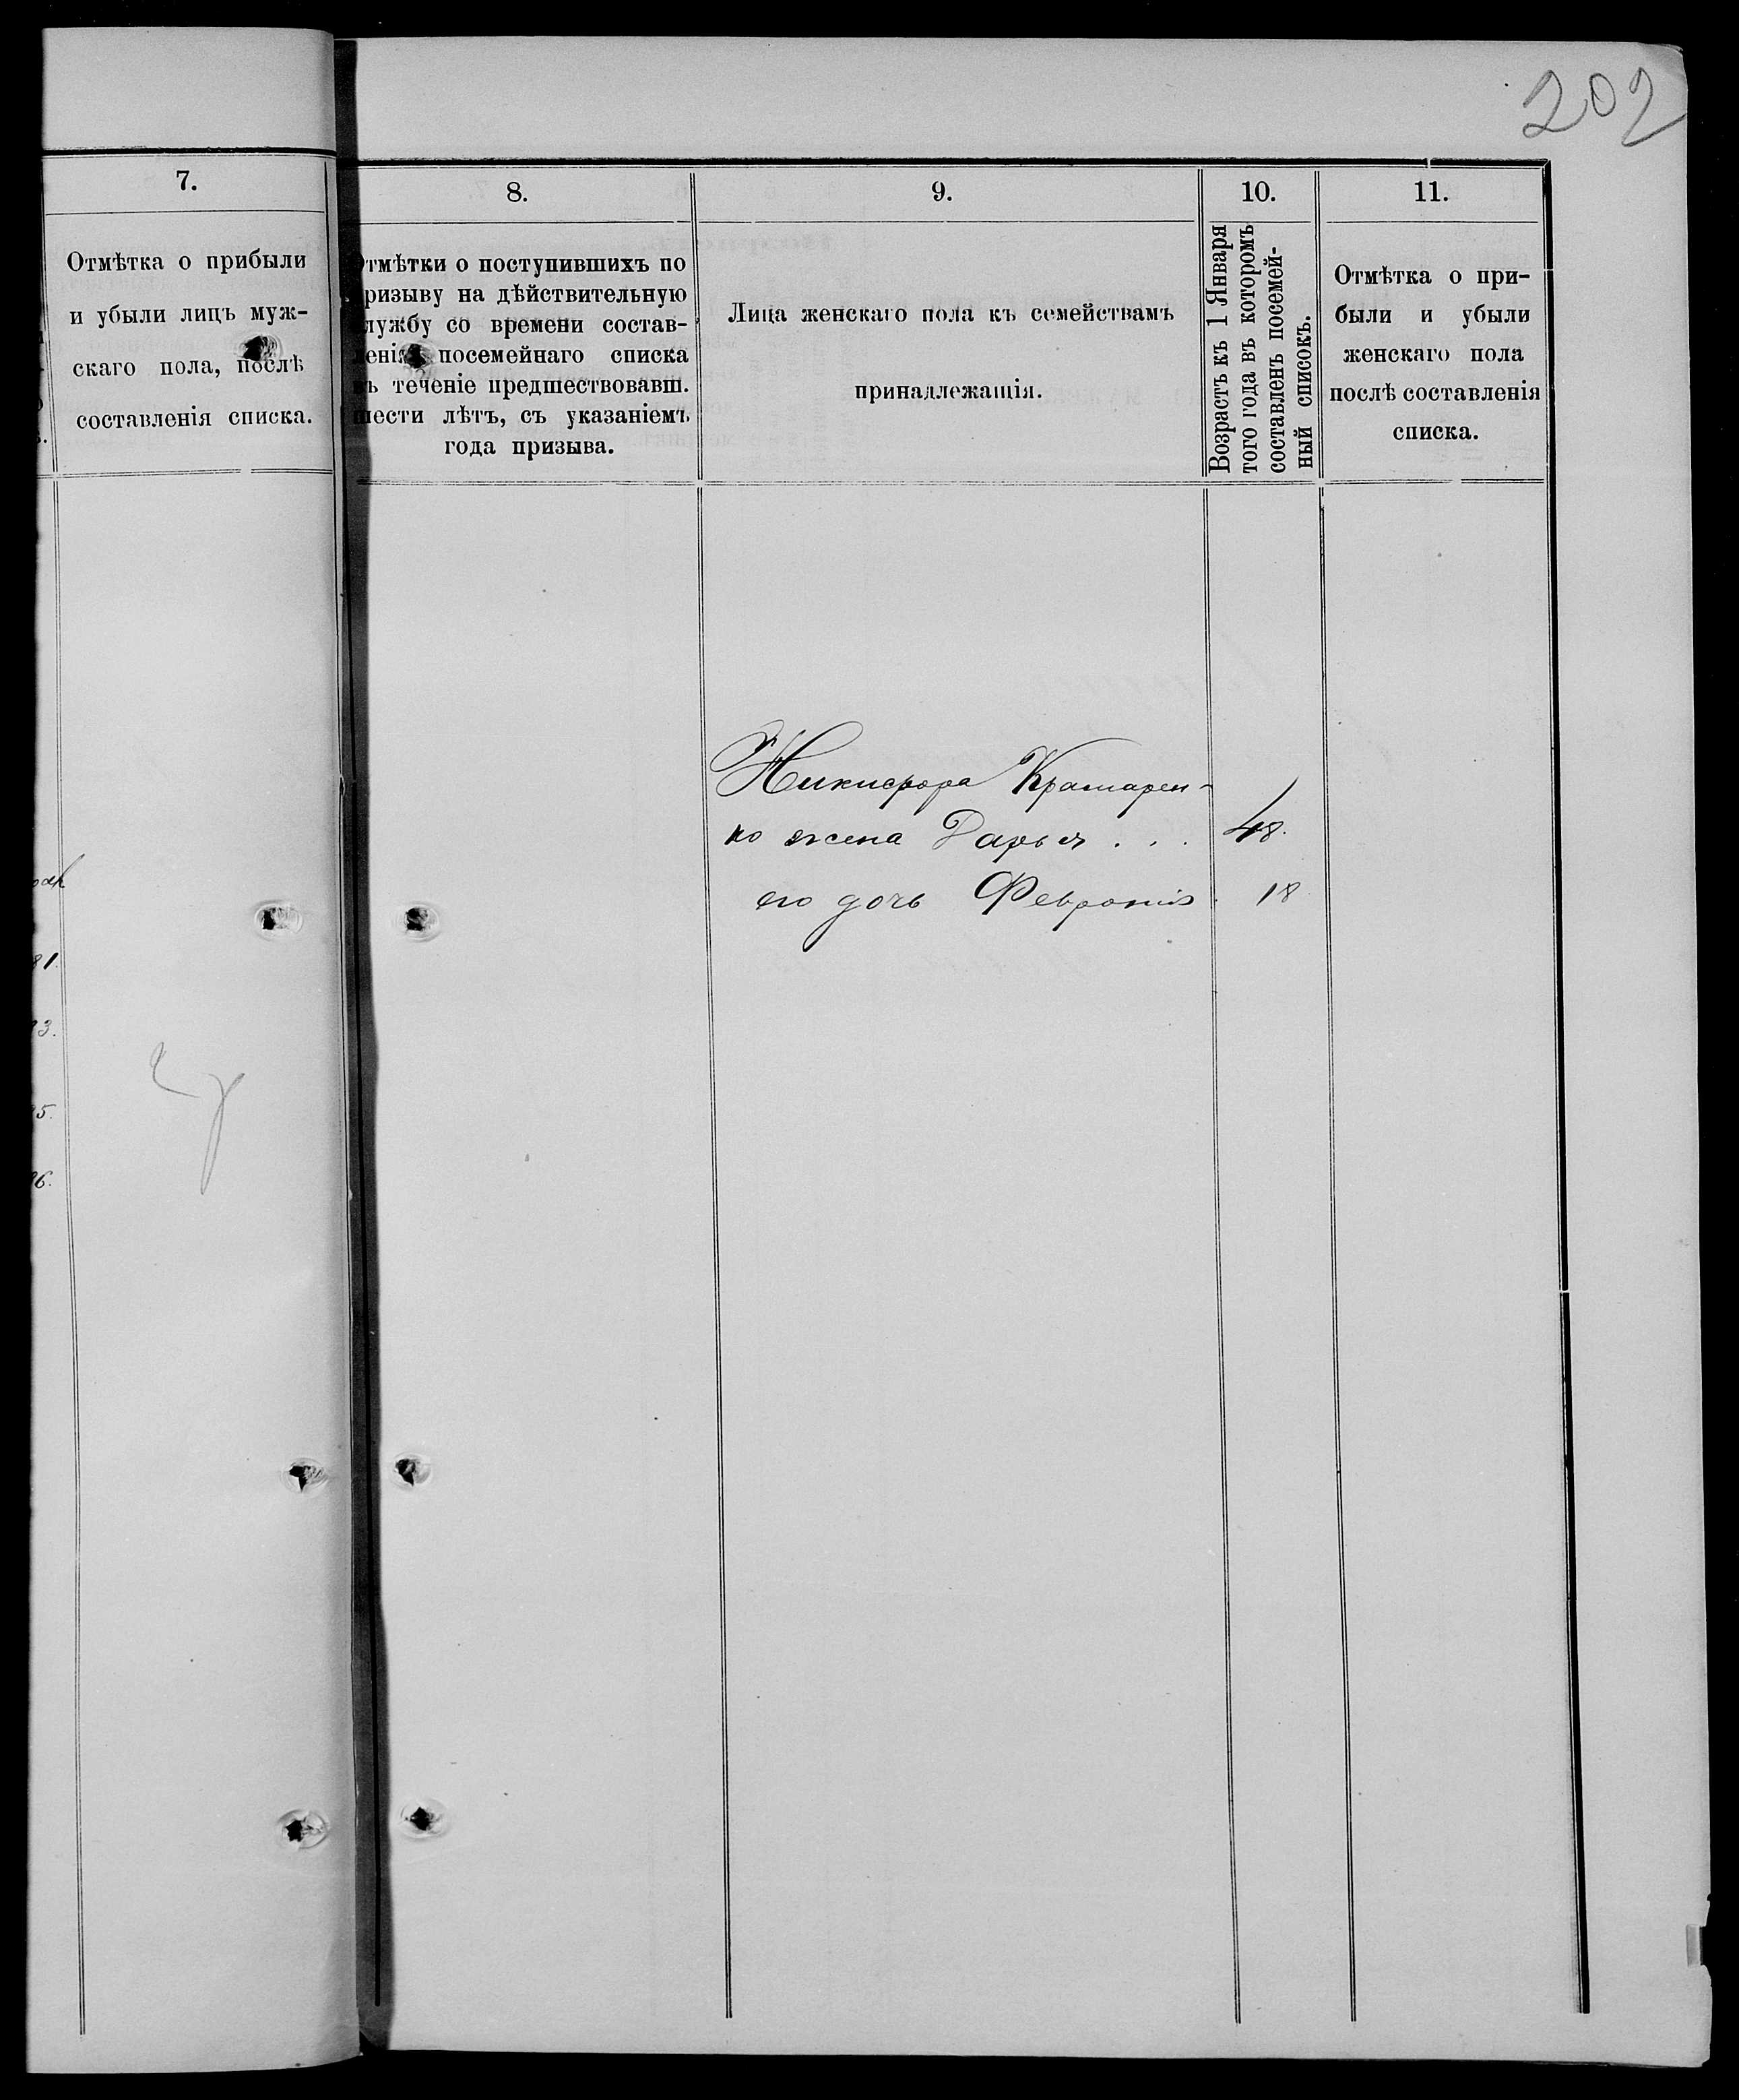 202
7.
Отмѣтка о прибыли
и убыли лицъ муж-
скаго пола, послѣ
составленія списка.
8.
Отмѣтки о поступившихъ по
призыву на дѣйствительную
службу со времени состав-
ленія посемейнаго списка
въ теченіе предшествовавш.
шести лѣтъ, съ указаніемъ
года призыва.
9.
Лица женскаго пола къ семействамъ
принадлежащія.
10.
Возрастъ къ 1 Января
того года въ которомъ
составленъ посемей-
ный списокъ.
11.
Отмѣтка о при-
были и убыли
женскаго пола
послѣ составленія
списка.
Никифора Крамарен-
ко жена Дарья . . . 48.
его дочь Февронія 18
81.
3.
5.
6.